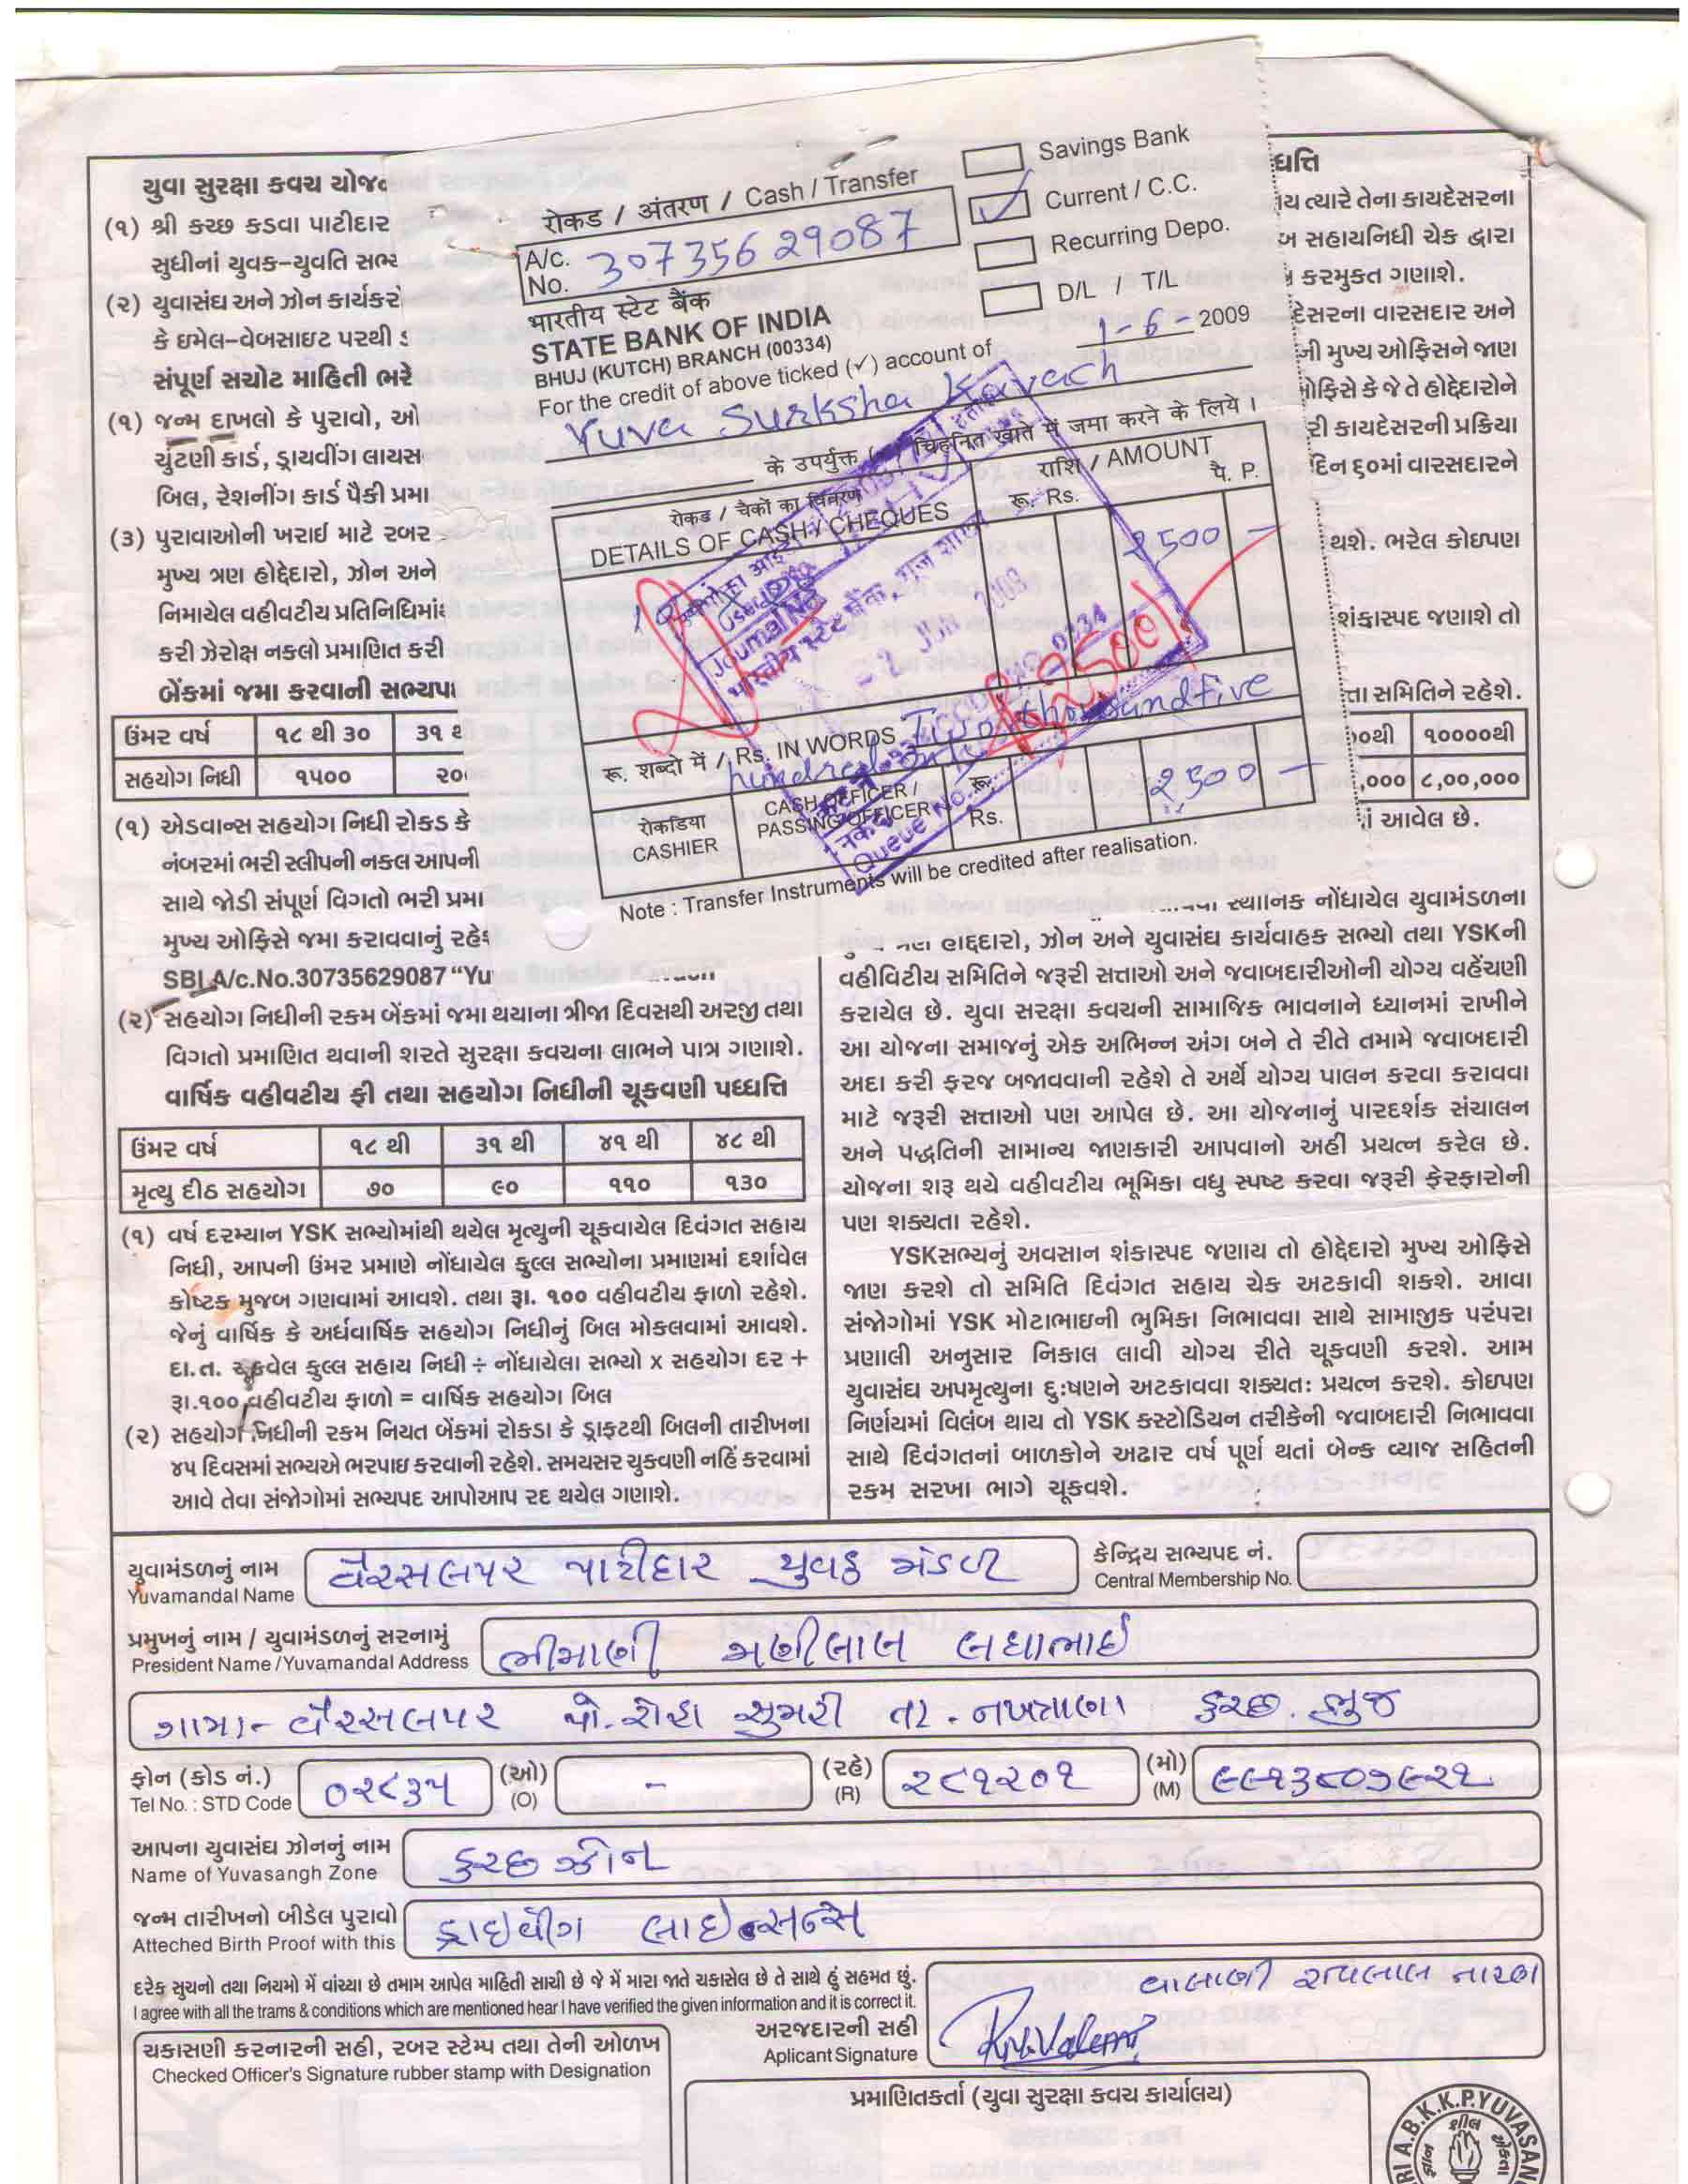 યુવા સુરક્ષા કવચ યોજ
(૧) શ્રી કચ્છ કડવા પાટીદાર
સુધીનાં યુવક-યુવતિ સભ્ય
(૨) યુવાસંઘ અને ઝોન કાર્યકરો
કે ઇમેલ-વેબસાઇટ પરથી
સંપૂર્ણ સચોટ માહિતી ભરે
(૧) જન્મ દાખલો કે પુરાવો, ઓ
ચુંટણી કાર્ડ, ડ્રાયવીંગ લાયસ
બિલ, રેશનીંગ કાર્ડ પૈકી પ્રમા
(૩) પુરાવાઓની ખરાઇ માટે રબર
મુખ્ય ત્રણ હોદ્દેદારો, ઝોન અને
નિમાયેલ વહીવટીય પ્રતિનિધિમાં
કરી ઝેરોક્ષ નકલો પ્રમાણિત કરી
બેંકમાં જમા કરવાની સભ્યપ
ઉંમર વર્ષ ૧૮ થી ૩૦ ૩૧ થ
સહયોગ નિધી ૧૫૦૦ ૨૦
(૧) એડવાન્સ સહયોગ નિધી રોકડ કે
નંબરમાં ભરી સ્લીપની નકલ આપની
સાથે જોડી સંપૂર્ણ વિગતો ભરી પ્રમા
મુખ્ય ઓફિસે જમા કરાવવાનું રહે
SBI A/c.No.30735629087 “Yu
(૨) સહયોગ નિધીની રકમ બેંકમાં જમા થયાના ત્રીજા દિવસથી અરજી તથા
વિગતો પ્રમાણિત થવાની શરતે સુરક્ષા કવચના લાભને પાત્ર ગણાશે.
વાર્ષિક વહીવટીય ફી તથા સહયોગ નિધીની ચૂકવણી પધ્ધતિ
ઉંમર વર્ષ ૧૮ થી ૩૧ થી ૪૧ થી ૪૮ થી
મૃત્યુ દીઠ સહયોગ ૭૦ ૯૦ ૧૧૦ ૧૩૦
(૧) વર્ષ દરમ્યાન YSK સભ્યોમાંથી થયેલ મૃત્યુની ચૂકવાયેલ દિવંગત સહાય
નિધી, આપની ઉંમર પ્રમાણે નોંધાયેલ કુલ્લ સભ્યોના પ્રમાણમાં દર્શાવેલ
કોષ્ટક મુજબ ગણવામાં આવશે. તથા રૂા. ૧૦૦ વહીવટીય ફાળો રહેશે.
જેનું વાર્ષિક કે અર્ધવાર્ષિક સહયોગ નિધીનું બિલ મોકલવામાં આવશે.
દા.ત. ચુકવેલ કુલ્લ સહાય નિધી ÷ નોંધાયેલા સભ્યો x સહયોગ દર +
રૂા.૧૦૦ વહીવટીય ફાળો = વાર્ષિક સહયોગ બિલ
(૨) સહયોગ નિધીની રકમ નિયત બેંકમાં રોકડા કે ડ્રાફટથી બિલની તારીખના
૪૫ દિવસમાં સભ્યએ ભરપાઇ કરવાની રહેશે. સમયસર ચુકવણી નહિં કરવામાં
આવે તેવા સંજોગોમાં સભ્યપદ આપોઆપ રદ થયેલ ગણાશે.
रोकड / अंतरण / Cash / Transfer
A/c. No. 30735629087
Savings Bank
✓ Current / C.C.
Recurring Depo.
D/L / T/L
भारतीय स्टेट बैंक
STATE BANK OF INDIA
BHUJ (KUTCH) BRANCH (00334)
1-6-2009
For the credit of above ticked (✓) account of
Yuva Surksha Kavach
के उपर्युक्त (✓) चिहनित खाते में जमा करने के लिये ।
रोकड / चेकों का विवरण
DETAILS OF CASH / CHEQUES
राशि / AMOUNT
रू. Rs. पै. P.
2500 —
2500/
रू. शब्दो में / Rs. IN WORDS Two thousand five
hundred only
रोकडिया
CASHIER
CASH OFFICER /
PASSING OFFICER
रू.
Rs.
2500 —
Note : Transfer Instruments will be credited after realisation.
Journal No.
Queue No.
ધ્ધતિ
ય ત્યારે તેના કાયદેસરના
ખ સહાયનિધી ચેક દ્વારા
કરમુકત ગણાશે.
દેસરના વારસદાર અને
ની મુખ્ય ઓફિસને જાણ
ઓફિસે કે જે તે હોદ્દેદારોને
રી કાયદેસરની પ્રક્રિયા
દિન ૬૦માં વારસદારને
થશે. ભરેલ કોઇપણ
શંકાસ્પદ જણાશે તો
તા સમિતિને રહેશે.
૦થી ૧૦૦૦૦થી
,૦૦૦ ૮,૦૦,૦૦૦
આવેલ છે.
સ્થાનિક નોંધાયેલ યુવામંડળના
ત્રણ હોદ્દદારો, ઝોન અને યુવાસંઘ કાર્યવાહક સભ્યો તથા YSKની
વહીવિટીય સમિતિને જરૂરી સત્તાઓ અને જવાબદારીઓની યોગ્ય વહેંચણી
કરાયેલ છે. યુવા સરક્ષા કવચની સામાજિક ભાવનાને ધ્યાનમાં રાખીને
આ યોજના સમાજનું એક અભિન્ન અંગ બને તે રીતે તમામે જવાબદારી
અદા કરી ફરજ બજાવવાની રહેશે તે અર્થે યોગ્ય પાલન કરવા કરાવવા
માટે જરૂરી સત્તાઓ પણ આપેલ છે. આ યોજનાનું પારદર્શક સંચાલન
અને પદ્ધતિની સામાન્ય જાણકારી આપવાનો અહીં પ્રયત્ન કરેલ છે.
યોજના શરૂ થયે વહીવટીય ભૂમિકા વધુ સ્પષ્ટ કરવા જરૂરી ફેરફારોની
પણ શક્યતા રહેશે.
YSKસભ્યનું અવસાન શંકાસ્પદ જણાય તો હોદ્દેદારો મુખ્ય ઓફિસે
જાણ કરશે તો સમિતિ દિવંગત સહાય ચેક અટકાવી શકશે. આવા
સંજોગોમાં YSK મોટાભાઇની ભુમિકા નિભાવવા સાથે સામાજીક પરંપરા
પ્રણાલી અનુસાર નિકાલ લાવી યોગ્ય રીતે ચૂકવણી કરશે. આમ
યુવાસંઘ અપમૃત્યુના દુઃષણને અટકાવવા શક્યતઃ પ્રયત્ન કરશે. કોઇપણ
નિર્ણયમાં વિલંબ થાય તો YSK કસ્ટોડિયન તરીકેની જવાબદારી નિભાવવા
સાથે દિવંગતનાં બાળકોને અઢાર વર્ષ પૂર્ણ થતાં બેન્ક વ્યાજ સહિતની
રકમ સરખા ભાગે ચૂકવશે.
યુવામંડળનું નામ વેરસલપર પાટીદાર યુવક મંડળ
Yuvamandal Name
કેન્દ્રિય સભ્યપદ નં.
Central Membership No.
પ્રમુખનું નામ / યુવામંડળનું સરનામું ભીમાણી મણીલાલ લધાભાઈ
President Name / Yuvamandal Address
ગામ:- વેરસલપર પો. રોહા સુમરી તા. નખત્રાણા કચ્છ. ભુજ
ફોન (કોડ નં.) ૦૨૮૩૫ (ઓ) - (રહે) ૨૮૧૨૦૧ (મો) ૯૯૧૩૮૦૭૯૨૧
Tel No. : STD Code (O) (R) (M)
આપના યુવાસંઘ ઝોનનું નામ કચ્છ ઝોન
Name of Yuvasangh Zone
જન્મ તારીખનો બીડેલ પુરાવો ડ્રાઇવીંગ લાઇસન્સ
Atteched Birth Proof with this
દરેક સુચનો તથા નિયમો મેં વાંચ્યા છે તમામ આપેલ માહિતી સાચી છે જે મેં મારા જાતે ચકાસેલ છે તે સાથે હું સહમત છું.
I agree with all the trams & conditions which are mentioned hear I have verified the given information and it is correct it.
અરજદારની સહી
Aplicant Signature
ચકાસણી કરનારની સહી, રબર સ્ટેમ્પ તથા તેની ઓળખ
Checked Officer's Signature rubber stamp with Designation
પ્રમાણિતકર્તા (યુવા સુરક્ષા કવચ કાર્યાલય)
RI A.B.K.K.P. YUVASAN